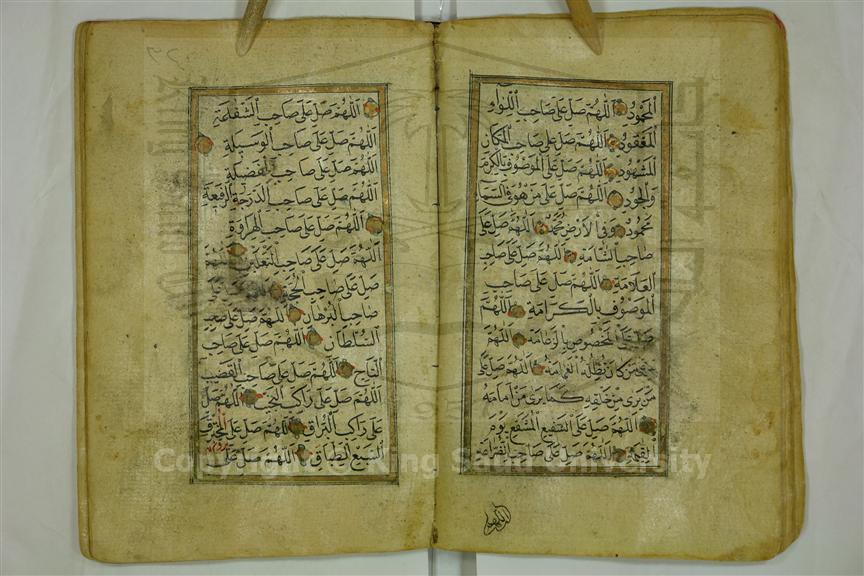 المحمود اللهم صل على صاحب اللواء
المعقود اللهم صل على صاحب المكان
المشهود اللهم صل على الموصوف بالكرم
والجود اللهم صل على من هو في السماء
محمود وفي الأرض محمد اللهم صل على
صاحب الشامة اللهم صل على صاحب
العلامة اللهم صل على صاحب
الموصوف بالكرامة اللهم
صل على المخصوص بالزعامة اللهم
صل على من كان تظله الغمامة اللهم صل على
من يرى من خلفه كما يرى من أمامه
اللهم صل على الشفيع المشفع يوم
القيمة اللهم صل على صاحب الضراعة
اللهم صل على صاحب الشفاعة
اللهم صل على صاحب الوسيلة
اللهم صل على صاحب الفضيلة
اللهم صل على صاحب الدرجة الرفيعة
اللهم صل على صاحب الهراوة
اللهم صل على صاحب النعلين اللهم
صل على صاحب الحجة
صاحب البرهان اللهم صل على صاحب
السلطان اللهم صل على صاحب
التاج اللهم صل على صاحب القضيب
اللهم صل على راكب النجيب اللهم صل
على راكب البراق اللهم صل على مخترق
السبع الطباق اللهم صل على
Copyright © King Saud University